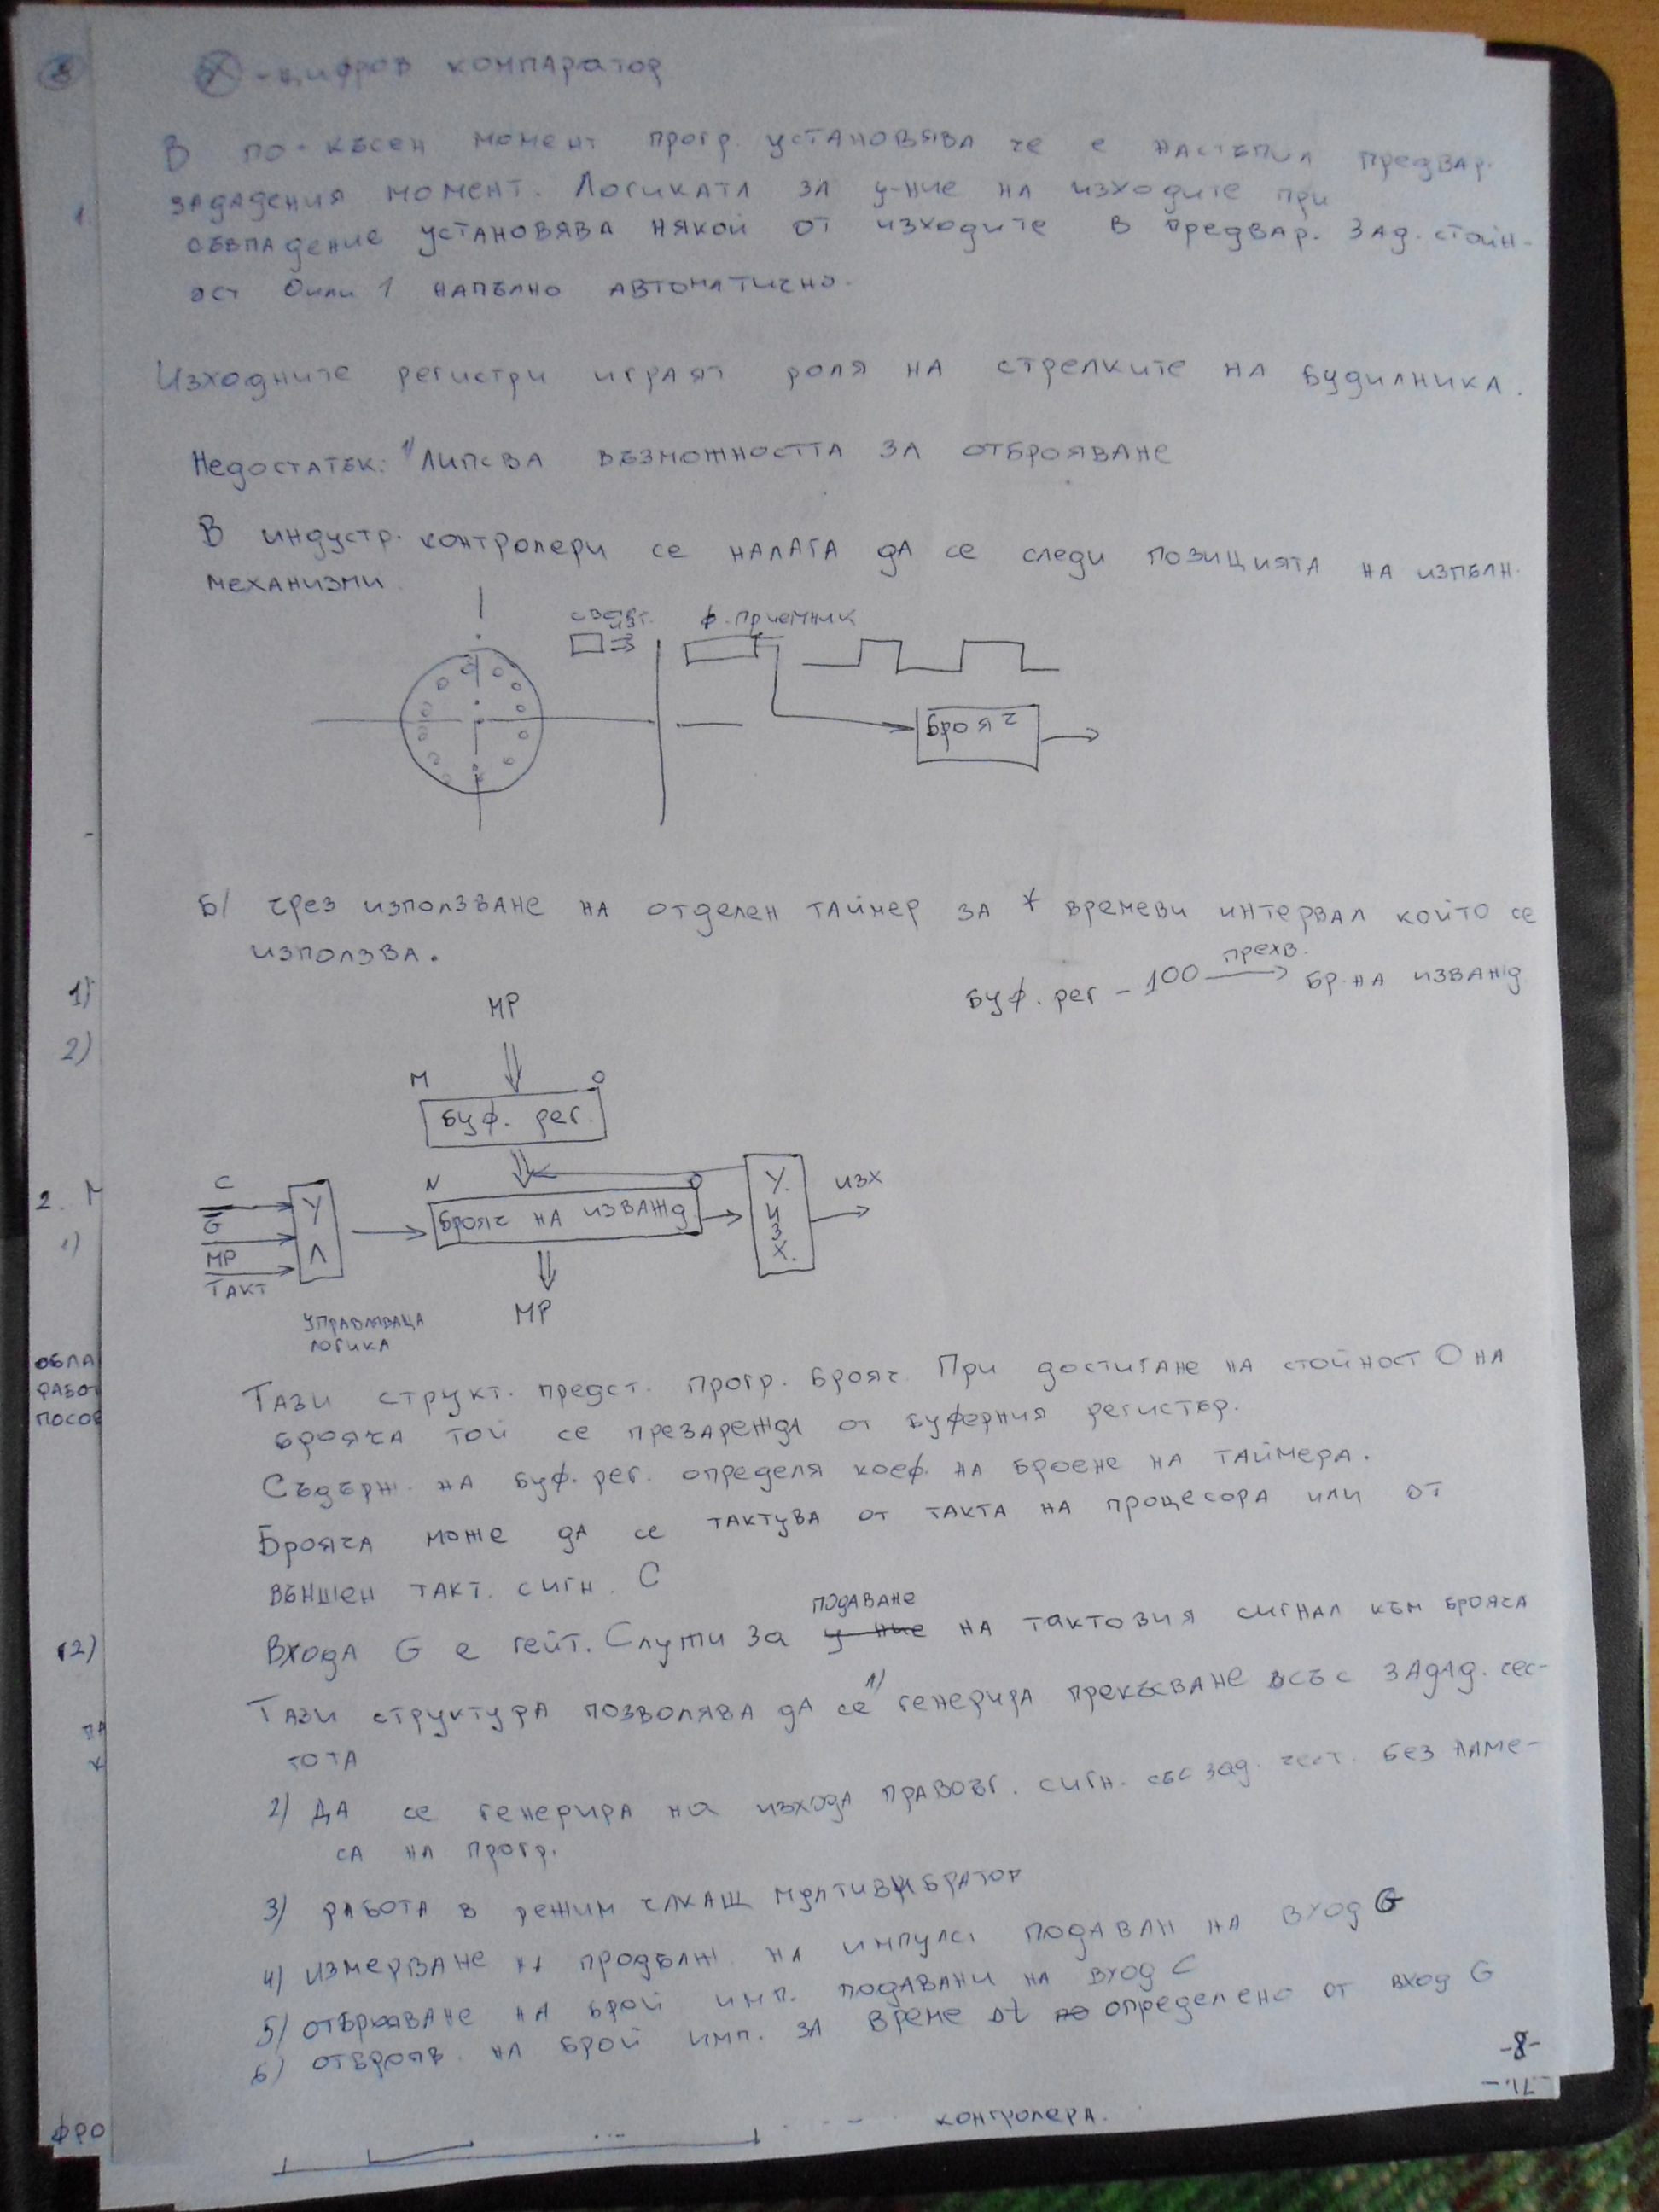 - цифров компаратор
В по-късен момент прогр. установява че е настъпил предвар.
зададения момент. Логиката за у-ние на изходите при
съвпадение установява някой от изходите в предвар. зад. стойн-
ост 0 или 1 напълно автоматично.
Изходните регистри играят роля на стрелките на будилника.
Недостатък: 1) Липсва възможността за отброяване
В индустр. контролери се налага да се следи позицията на изпълн.
механизми
изт.
ф. приемник
Брояч
Б/ чрез използване на отделен таймер за * времеви интервал който се
използва.
Буф. рег - 100 прехв. Бр. на изважд
МР
М 0
Буф. рег.
С
G
МР
Такт
У
Л
N 0
Брояч на изважд.
У.
И
З
Х.
изх
МР
управляваща
логика
Тази структ. предст. прогр. брояч. При достигане на стойност 0 на
брояча той се презарежда от буферния регистър.
Съдърж. на буф. рег. определя коеф. на броене на таймера.
Брояча може да се тактува от такта на процесора или от
външен такт. сигн. С
подаване
Входа G е гейт. Служи за у-ние на тактовия сигнал към брояча
Тази структура позволява да се 1) генерира прекъсване със задад. чес-
тота
2) Да се генерира на изхода правоъг. сигн. със зад. чест. без наме-
са на прогр.
3) работа в режим чакащ мултивибратор
4) измерване на продълж. на импулс подаван на вход G
5) отброяване на брой имп. подавани на вход С
6) отброяв. на брой имп. за време Δt определено от вход G
-8-
контролера.
1.
1)
2)
2. М
1)
обла
работ
посов
(2)
па
к
фро